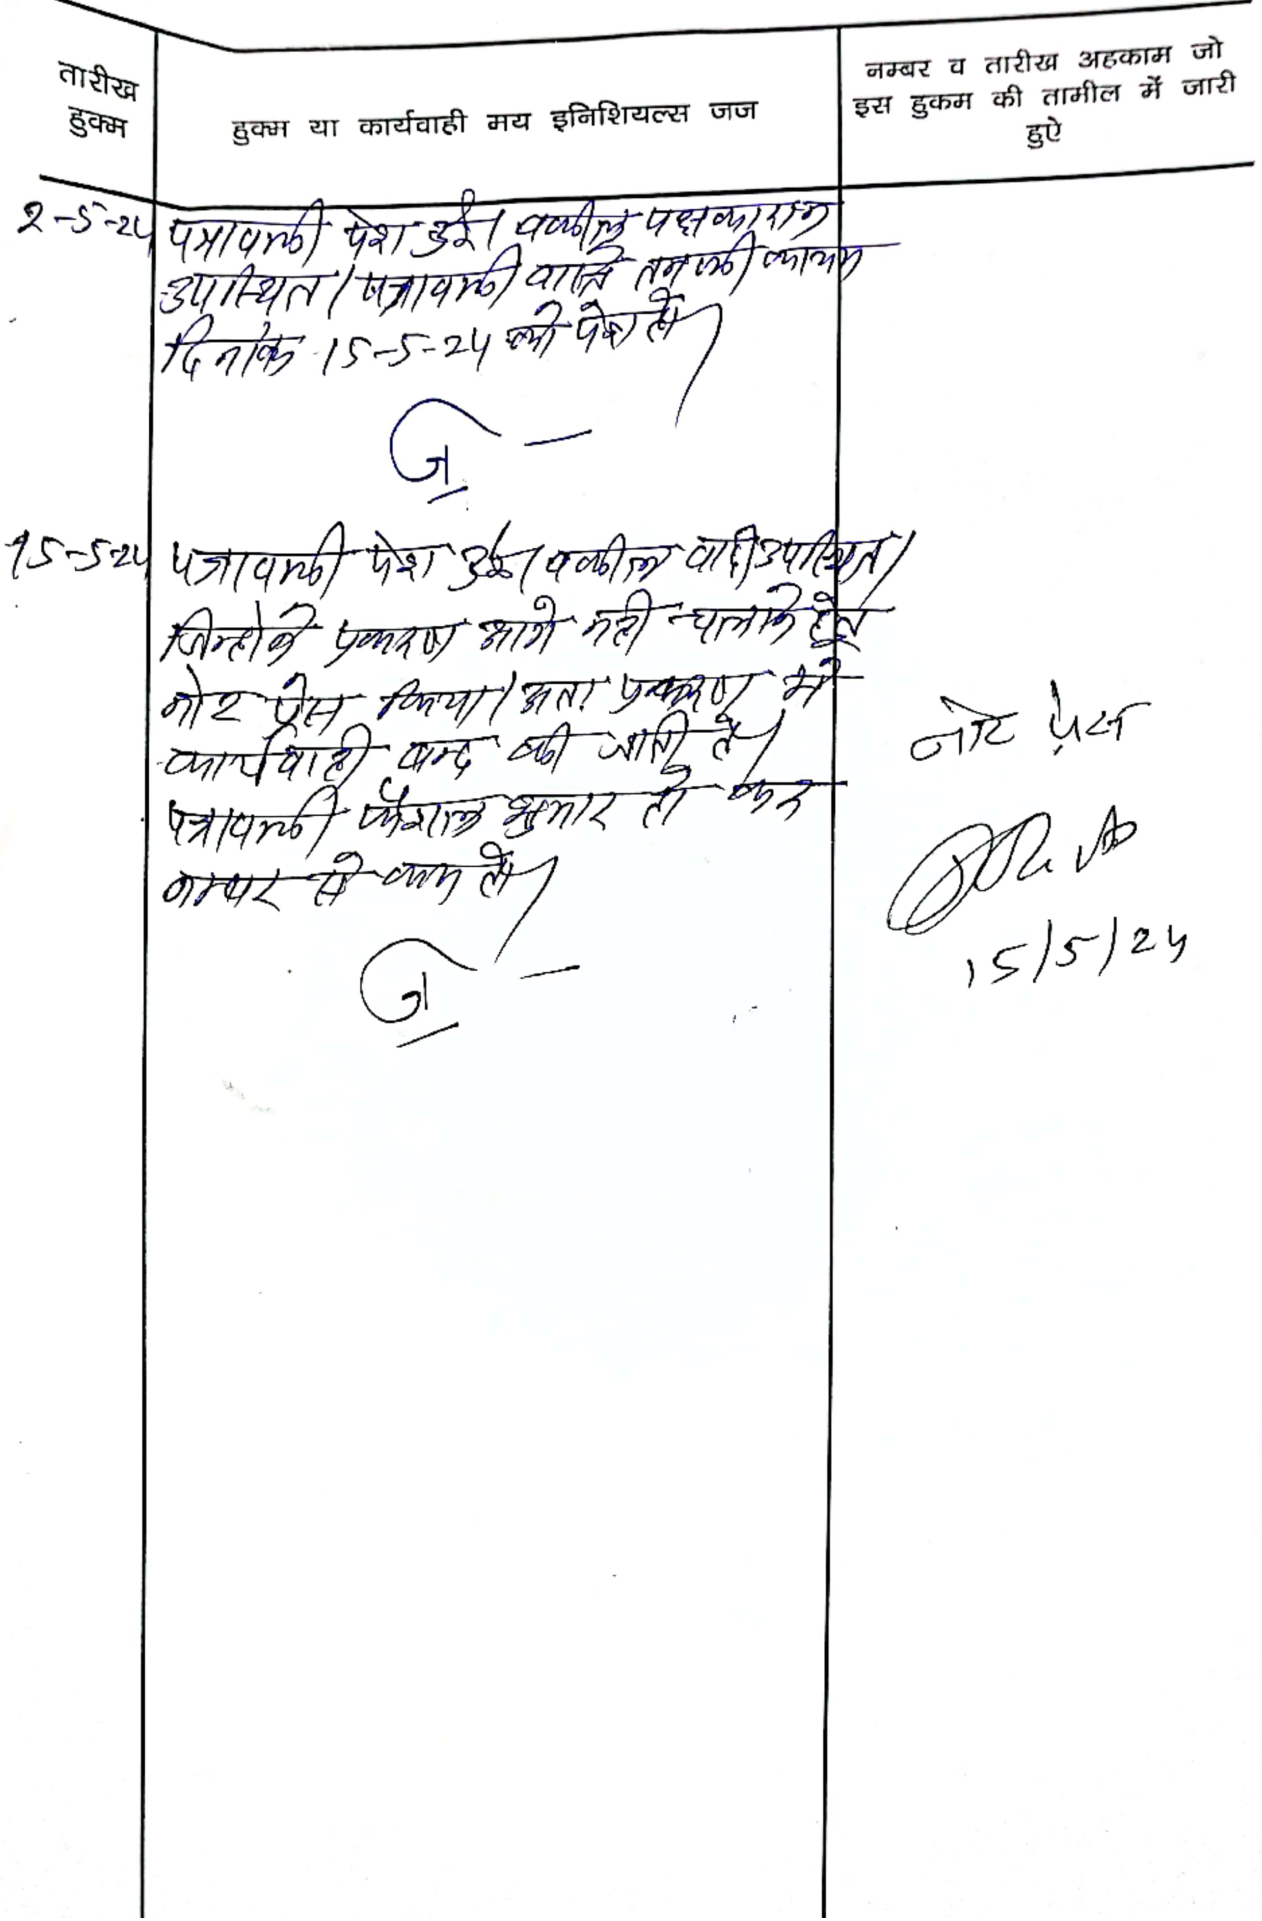 तारीख
हुक्म
हुक्म या कार्यवाही मय इनिशियल्स जज
नम्बर व तारीख अहकाम जो
इस हुकम की तामील में जारी
हुऐ
2-5-24 पत्रावली पेश हुई। वकील पक्षकारान
उपस्थित। पत्रावली वास्ते तनकी कायम
दिनांक 15-5-24 को पेश हो।
15-5-24 पत्रावली पेश हुई। वकील वादी उपस्थित।
जिन्होने प्रकरण आगे नही चलाने हेतु
नोट प्रेस किया। अतः प्रकरण मे
कार्यवाही बन्द की जाती है।
पत्रावली फैशल शुमार हो कर
नम्बर से कम हो।
नोट प्रेस
15/5/24